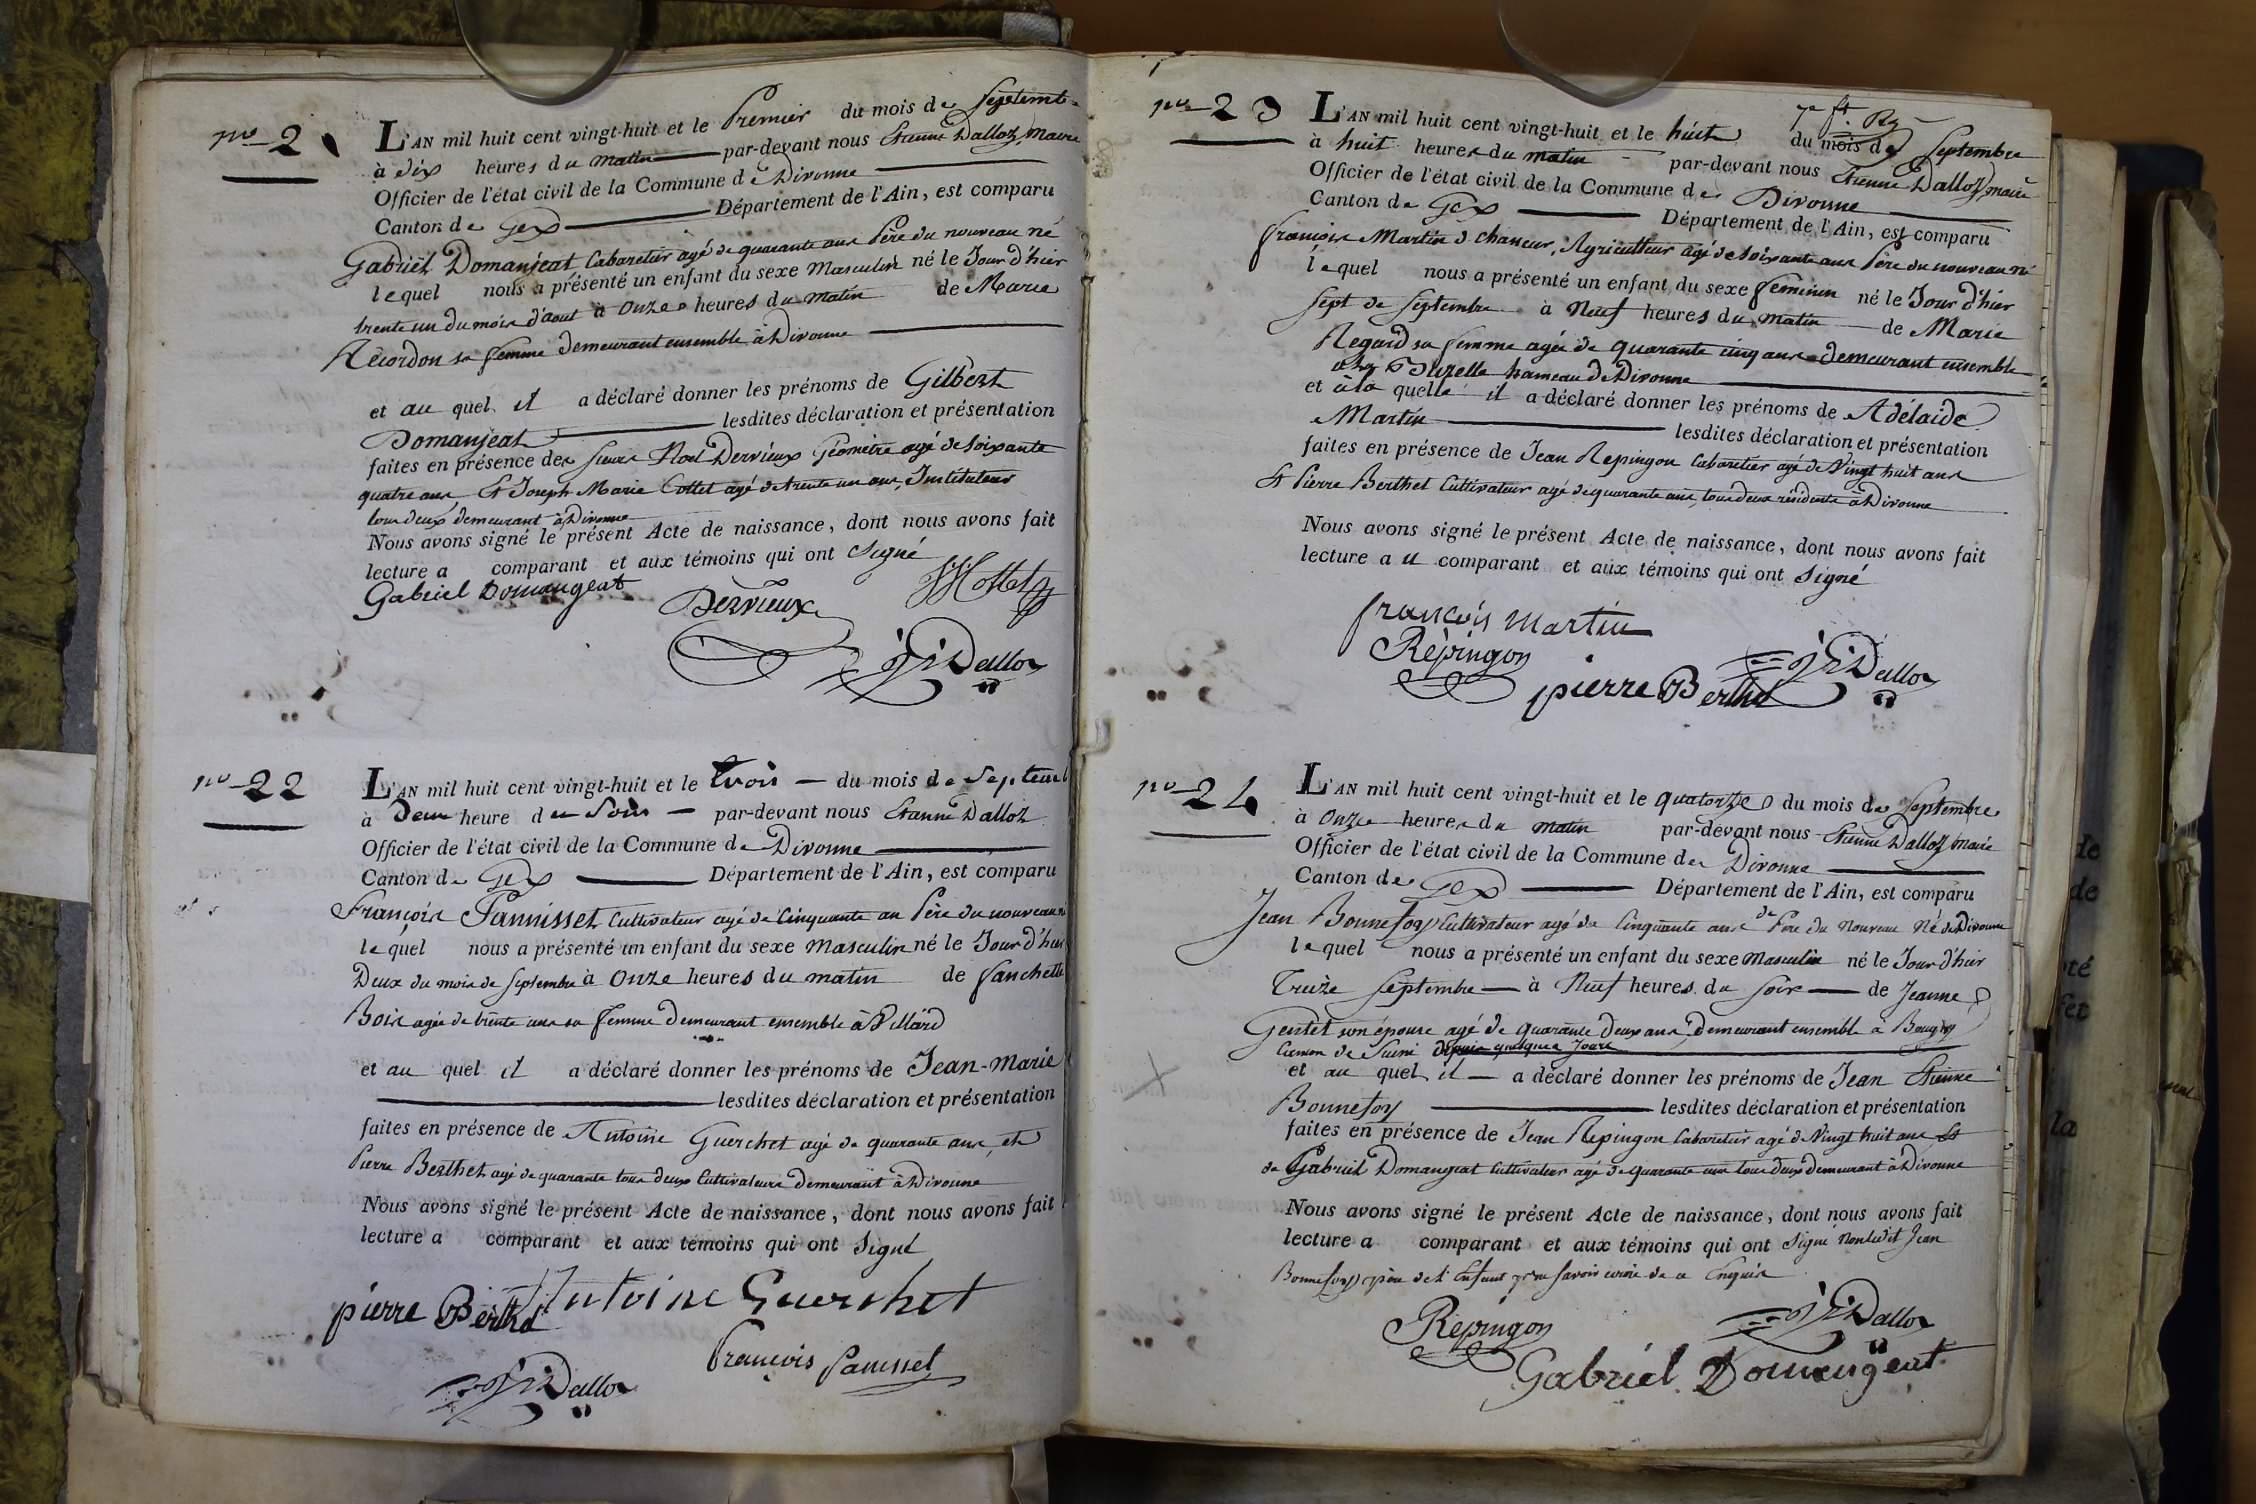 no 21
L'AN mil huit cent vingt-huit et le Premier du mois de Septemb
à dix heures du matin par-devant nous Etienne Dalloz, Maire
Officier de l'état civil de la Commune de Divonne
Canton de Gex Département de l'Ain, est comparu
Gabriël Domanjeat Cabaretier agé de quarante ans Père du nouveau né
lequel nous a présenté un enfant du sexe Masculin né le Jour d'hier
trente un du mois d'aout à onze heures du matin de Marie
Récordon sa femme demeurant ensemble à Divonne
et au quel il a déclaré donner les prénoms de Gilbert
Domanjeat lesdites déclaration et présentation
faites en présence des sieurs Noel Dervieux Géomètre agé de soixante
quatre ans Et Joseph Marie Cottet agé de trente un ans, Instituteur
tous deux demeurant à Divonne
Nous avons signé le présent Acte de naissance, dont nous avons fait
lecture a comparant et aux témoins qui ont Signé
Gabriel Domangeat Dervieux Cottet
Dalloz
no 22
L'AN mil huit cent vingt-huit et le trois du mois de Septemb
à Deux heure du Soir par-devant nous Etienne Dalloz
Officier de l'état civil de la Commune de Divonne
Canton de Gex Département de l'Ain, est comparu
François Pannisset Cultivateur agé de Cinquante an Père du nouveau né
lequel nous a présenté un enfant du sexe Masculin né le Jour d'hier
Deux du mois de Septembre à Onze heures du matin de Fanchette
Bois agée de trente ans sa femme Demeurant ensemble à Villard
et au quel il a déclaré donner les prénoms de Jean-Marie
lesdites déclaration et présentation
faites en présence de Antoine Guerchet agé de quarante ans, et
Pierre Berthet agé de quarante tous deux Cultivateurs Demeurant à Divonne
Nous avons signé le présent Acte de naissance, dont nous avons fait
lecture a comparant et aux témoins qui ont Signé
pierre Berthet Antoine Guerchet
François Panisset
Dalloz
no 23
L'AN mil huit cent vingt-huit et le huit du mois de Septembre
à huit heures du matin par-devant nous Etienne Dalloz, maire
Officier de l'état civil de la Commune de Divonne
Canton de Gex Département de l'Ain, est comparu
françois Martin Agriculteur agé de soixante ans Père du nouveau né
lequel nous a présenté un enfant du sexe feminin né le Jour d'hier
sept de Septembre à Neuf heures du matin de Marie
Regard sa femme agée de quarante cinq ans demeurant ensemble
hameau de Divonne
et à la quelle il a déclaré donner les prénoms de Adélaide
Martin lesdites déclaration et présentation
faites en présence de Jean Repingon Cabaretier agé de Vingt huit ans
Et Pierre Berthet Cultivateur agé de quarante ans, tous deux résidents à Divonne
Nous avons signé le présent Acte de naissance, dont nous avons fait
lecture a u comparant et aux témoins qui ont Signé
françois martin
Répingon Dalloz
pierre Berthet
no 24
L'AN mil huit cent vingt-huit et le quatorze du mois de Septembre
à Onze heures du matin par-devant nous Etienne Dalloz maire
Officier de l'état civil de la Commune de Divonne
Canton de Gex Département de l'Ain, est comparu
Jean Bonnefoy Cultivateur agé de Cinquante ans Père du nouveau Né de Divonne
lequel nous a présenté un enfant du sexe Masculin né le Jour d'hier
Treize Septembre à Neuf heures du soir de Jeanne
Gentet son épouse agé de quarante deux ans, demeurant ensemble à
depuis quelques Jours
et au quel il a déclaré donner les prénoms de Jean Etienne
Bonnefoy lesdites déclaration et présentation
faites en présence de Jean Repingon Cabaretier agé de Vingt huit ans Et
de Gabriël Domangeat Cultivateur agé de quarante ans tous deux demeurant à Divonne
Nous avons signé le présent Acte de naissance, dont nous avons fait
lecture a comparant et aux témoins qui ont signé Non ledit Jean
Bonnefoy père de l'Enfant pr ne savoir écrire de ce Enquis
Répingon Dalloz
Gabriel Domangeat